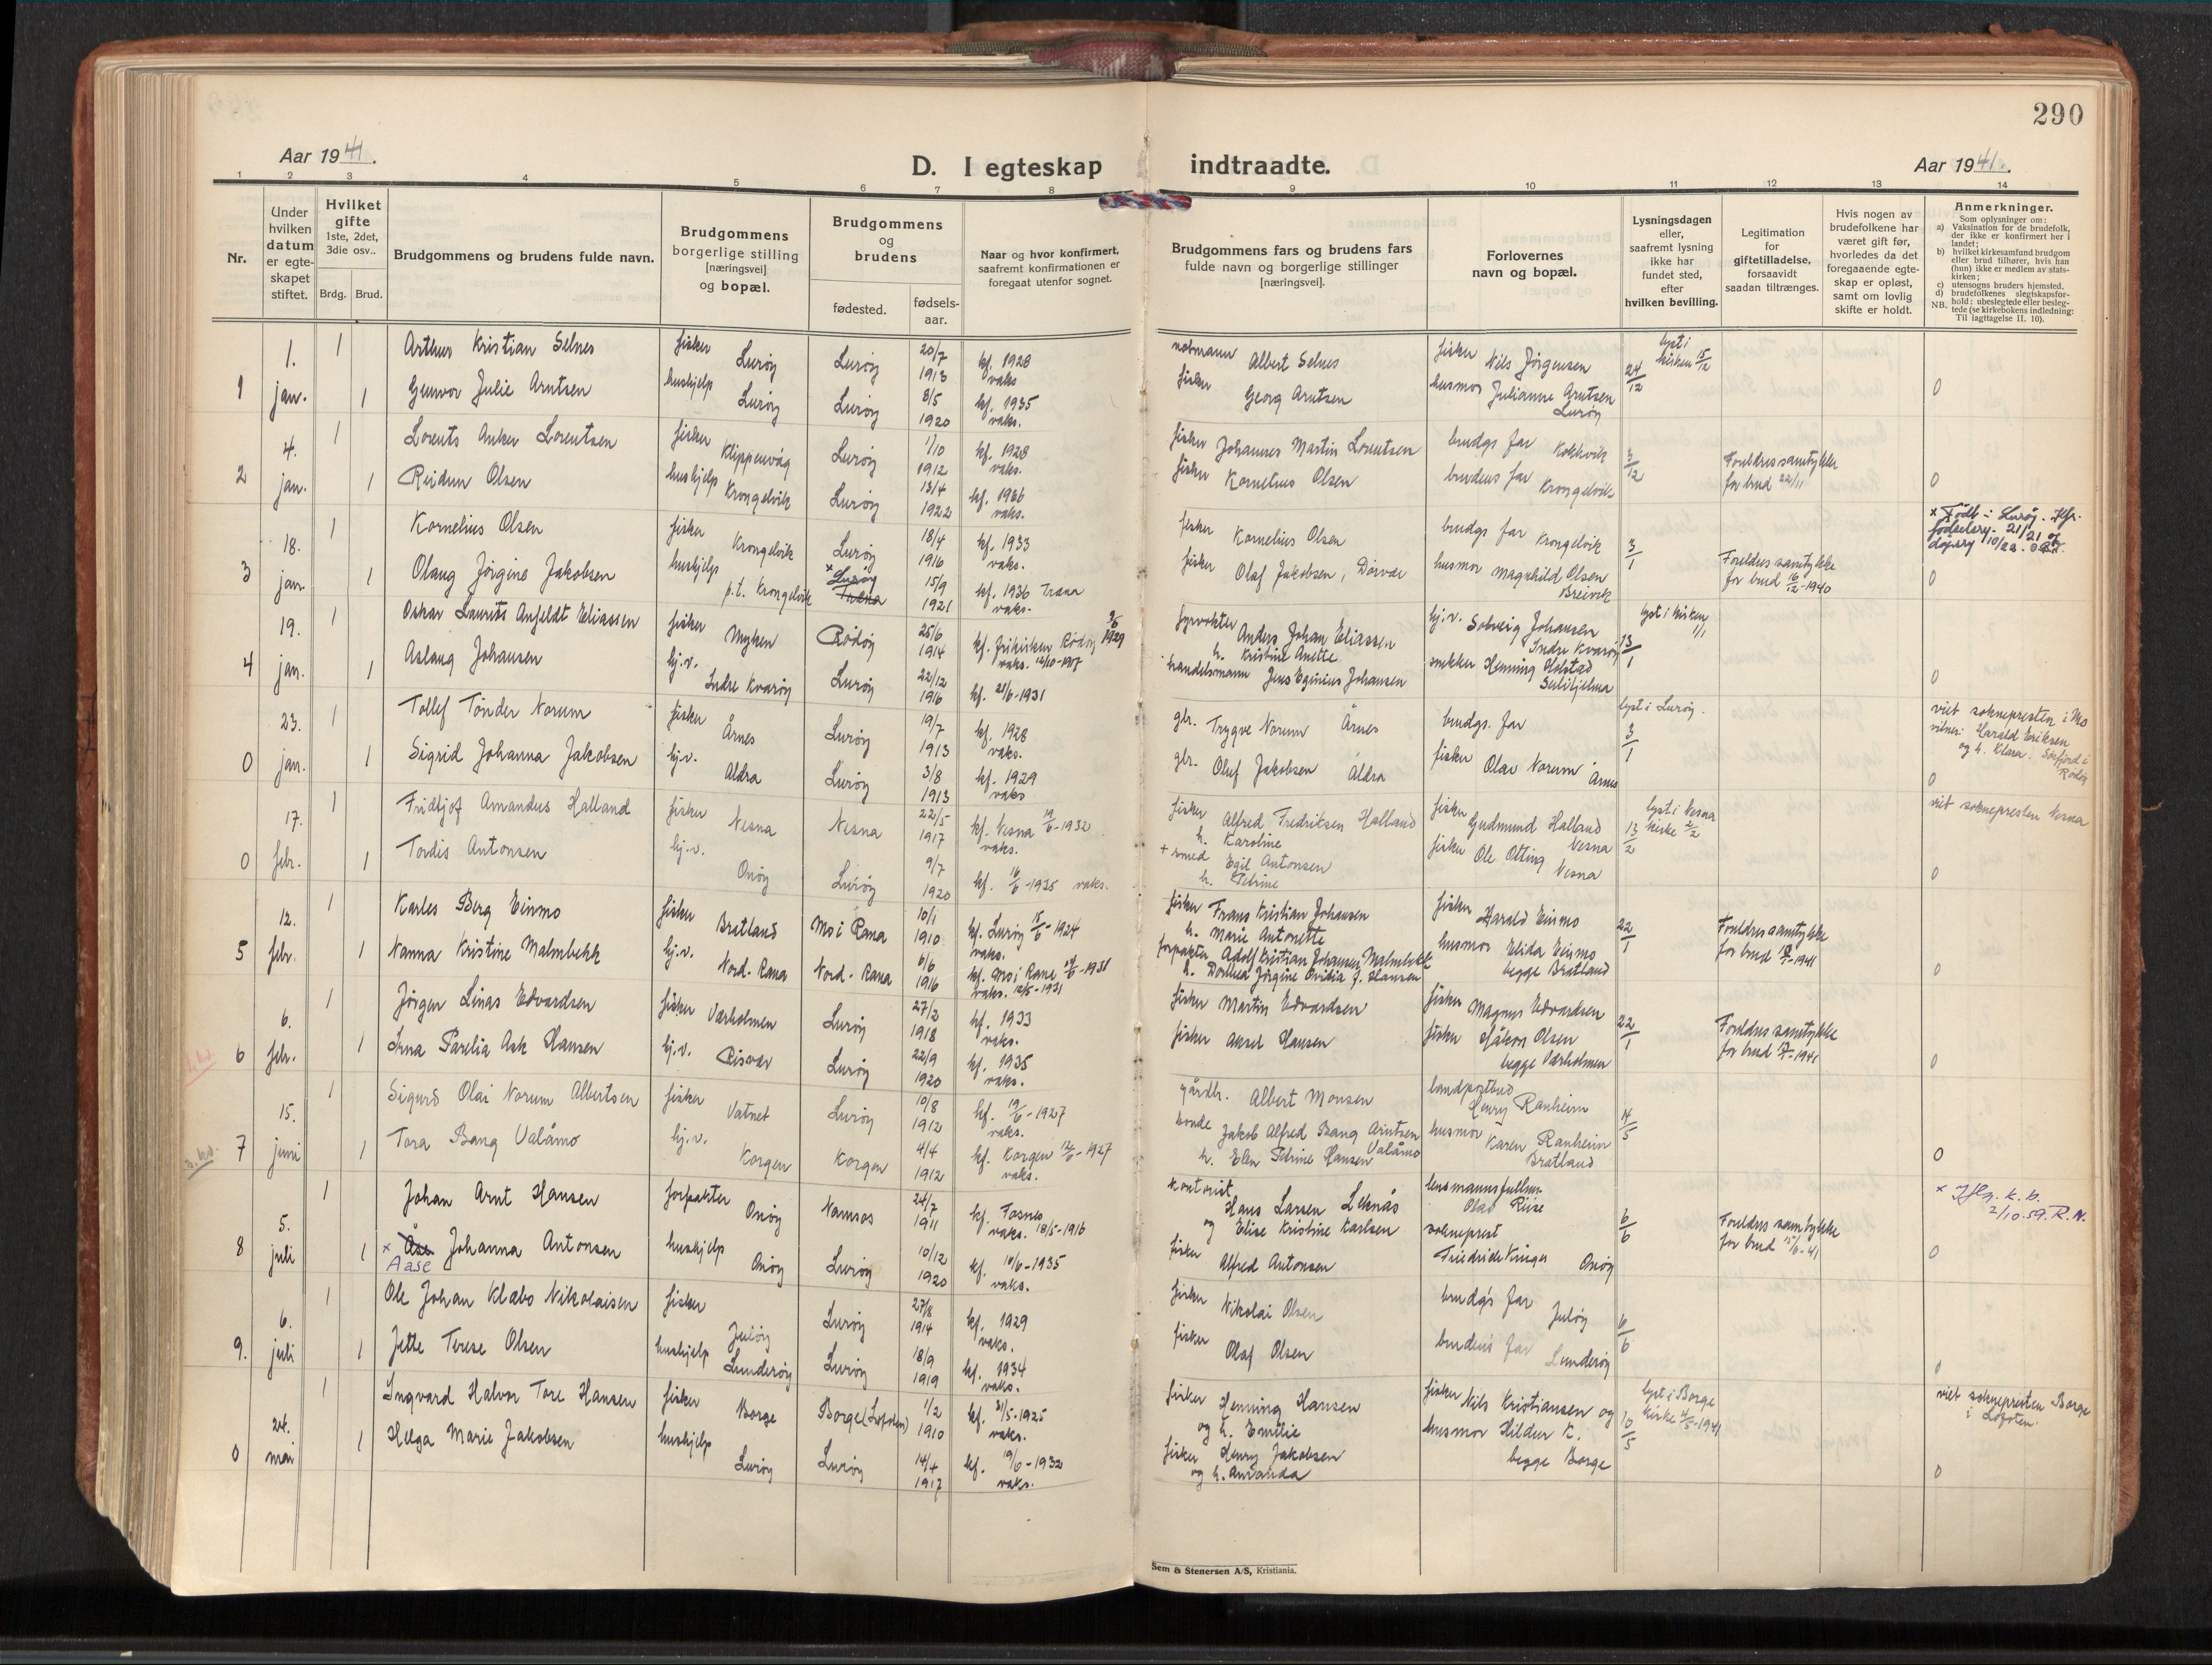 290
Aar 1941.
D. I egteskap indtraadte.
Aar 1941.
1 2 3 4 5 6 7 8 9 10 11 12 13 14
Nr.
Under hvilken datum er egte-skapet stiftet.
Hvilket gifte
1ste, 2det, 3die osv..
Brdg. Brud.
Brudgommens og brudens fulde navn.
Brudgommens borgerlige stilling [næringsvei] og bopæl.
Brudgommens og brudens
fødested.
fødsels-aar.
Naar og hvor konfirmert, saafremt konfirmationen er foregaat utenfor sognet.
Brudgommens fars og brudens fars fulde navn og borgerlige stillinger [næringsvei].
Forlovernes navn og bopæl.
Lysningsdagen eller, saafremt lysning ikke har fundet sted, efter hvilken bevilling.
Legitimation for giftetilladelse, forsaavidt saadan tiltrænges.
Hvis nogen av brudefolkene har været gift før, hvorledes da det foregaaende egte-skap er opløst, samt om lovlig skifte er holdt.
Anmerkninger.
Som oplysninger om:
a) Vaksination for de brudefolk, der ikke er konfirmert her i landet;
b) hvilket kirkesamfund brudgom eller brud tilhører, hvis han (hun) ikke er medlem av stats-kirken;
c) utensogns bruders hjemsted.
d) brudefolkenes slegtskapsfor-hold: ubeslegtede eller besleg-tede (se kirkebokens indledning: Til iagttagelse II. 10).
NB.
1 1. jan. 1 Arthur Kristian Selnes fisker Lurøy Lurøy 20/7 1913 kf. 1928 vaks
notmann Albert Selnes fisker Nils Jørgensen 24/12 lyst i kirken 15/12
1 Gunvor Julie Arntsen hushjelp Lurøy Lurøy 8/5 1920 kf. 1935 vaks.
fisker Georg Arntsen husmor Julianne Arntsen Lurøy 0
2 4. jan. 1 Lorents Anker Lorentsen fisker Klippenvåg Lurøy 1/10 1912 kf. 1928 vaks.
fisker Johannes Martin Lorentsen brudgs far Kokkvik 3/12 Foreldres samtykke for brud 22/11
1 Reidun Olsen hushjelp Krongelvik Lurøy 13/4 1922 kf. 1936 vaks.
fisker Kornelius Olsen brudens far Krongelvik 0
3 18. jan. 1 Kornelius Olsen fisker Krongelvik Lurøy 18/4 1916 kf. 1933 vaks.
fisker Kornelius Olsen brudgs far Krongelvik 3/1 Foreldres samtykke for brud 16/12-1940
x Født i Lurøy.
1 Olaug Jørgine Jakobsen hushjelp p.t. Krongelvik x Lurøy Træna 15/9 1921 kf. 1936 Træna vaks.
fisker Olaf Jakobsen, Dørvær husmor Magnhild Olsen Breivik 0
4 19. jan. 1 Oskar Laurits Anfeldt Eliassen fisker Myken Rødøy 25/6 1914 kf. frikirken Rødøy 1929 vaks. 12/10-1917
fyrvokter Anders Johan Eliassen h. Kristine Anette hj.v. Solveig Johansen Indre Kvarøy 13/1 lyst i kirken 1/1
1 Aslaug Johansen hj.v. Indre Kvarøy Lurøy 22/12 1916 kf. 21/6-1931
handelsmann Jens Eginius Johansen snekker Henning Holstad 0
0 23. jan. 1 Tollef Tønder Norum fisker Årnes Lurøy 19/7 1913 kf. 1928 vaks.
gbr. Trygve Norum Årnes brudgs. far 3/1 lyst i Lurøy.
viet sokneprestn i Mo vitner: Harald Eriksen og h. Klara. Sørfjord i Rødøy
1 Sigrid Johanna Jakobsen hj.v. Aldra Lurøy 3/8 1913 kf. 1929 vaks
gbr. Oluf Jakobsen Aldra fisker Olav Norum Årnes 0
0 17. febr. 1 Fridtjof Amandus Halland fisker Nesna Nesna 22/5 1917 kf. Nesna 19/6-1932 vaks.
fisker Alfred Fredriksen Halland h. Karoline fisker Gudmund Halland Nesna 13/2 lyst i Nesna kirke 2/2
viet soknepresten Nesna
1 Tordis Antonsen hj.v. Onøy Lurøy 9/7 1920 kf. 16/6-1935 vaks.
+ smed Egil Antonsen h. Petrine fisker Ole Otting Nesna 0
5 12. febr. 1 Karles Berg Einmo fisker Bratland Mo i Rana 10/1 1910 kf. Lurøy 15/6-1924 vaks.
fisker Frans Kristian Johansen h. Marie Antonette fisker Harald Einmo 22/1 Foreldres samtykke for brud 1941
1 Nanna Kristine Malmbekk hj.v. Nord-Rana Nord-Rana 6/6 1916 kf. Mo i Rana 1931 vaks. 12/5-1931
forpakter Adolf Kristian Johansen Malmbekk h. Dorthea Jørgine Ovidia f. Hansen husmor Elida Einmo begge Bratland 0
6 6. febr. 1 Jørgen Linas Edvardsen fisker Værholmen Lurøy 27/2 1918 kf. 1933 vaks.
fisker Martin Edvardsen fisker Magnus Edvardsen 22/1 Foreldres samtykke for brud 1941
1 Irna Parelia Ask Hansen hj.v. Risvær Lurøy 22/9 1920 kf. 1935 vaks.
fisker Aksel Hansen fisker Håkon Olsen begge Værholmen 0
7 15. juni 1 Sigurd Olai Norum Albertsen fisker Vatnet Lurøy 10/8 1912 kf. 19/6-1927 vaks.
gårdbr. Albert Monsen landpostbud Henry Ranheim 14/5
1 Tora Bang Valåmo hj.v. Korgen Korgen 4/4 1912 kf. Korgen 12/6-1927 vaks.
bonde Jakob Alfred Bang Arntsen Valåmo h. Elen Petrine Hansen husmor Karen Ranheim Bratland 0
8 5. juli 1 Johan Arnt Hansen forpakter Onøy Namsos 24/7 1911 kf. Fosnes vaks. 18/5-1916
kontorist Hans Larsen Leknås og Elise Kristine Karlsen lensmannsfullm. Olav Riise 6/6 Foreldres samtykke for brud 15/6-41
x 2/10.59. R.N.
1 x Åse Aase Johanna Antonsen hushjelp Onøy Lurøy 10/12 1920 kf. 10/6-1935 vaks.
fisker Alfred Antonsen sokneprest Onøy 0
9. 6. juli 1 Ole Johan Klæbo Nikolaisen fisker Juløy Lurøy 27/8 1914 kf. 1929 vaks.
fisker Nikolai Olsen brudg's far Juløy 6/6
1 Jette Terese Olsen hushjelp Sunderøy Lurøy 18/9 1919 kf. 1934 vaks.
fisker Olaf Olsen brudens far Sunderøy 0
0 24. mai 1 Ingvard Halvor Tore Hansen fisker Borge Borge (Lofoten) 1/2 1910 kf. 31/5-1925 vaks.
fisker Henning Hansen og h. Emilie fisker Nils Kristiansen og 10/5 lyst i Borge kirke 4/5-1941
viet soknepresten Borge i Lofoten.
1 Helga Marie Jakobsen hushjelp Lurøy Lurøy 14/4 1917 kf. 19/6-1932 vaks.
fisker Henry Jakobsen og h. Amanda husmor Hildur K. begge Borge 0
Sem & Stenersen A/S, Kristiania.